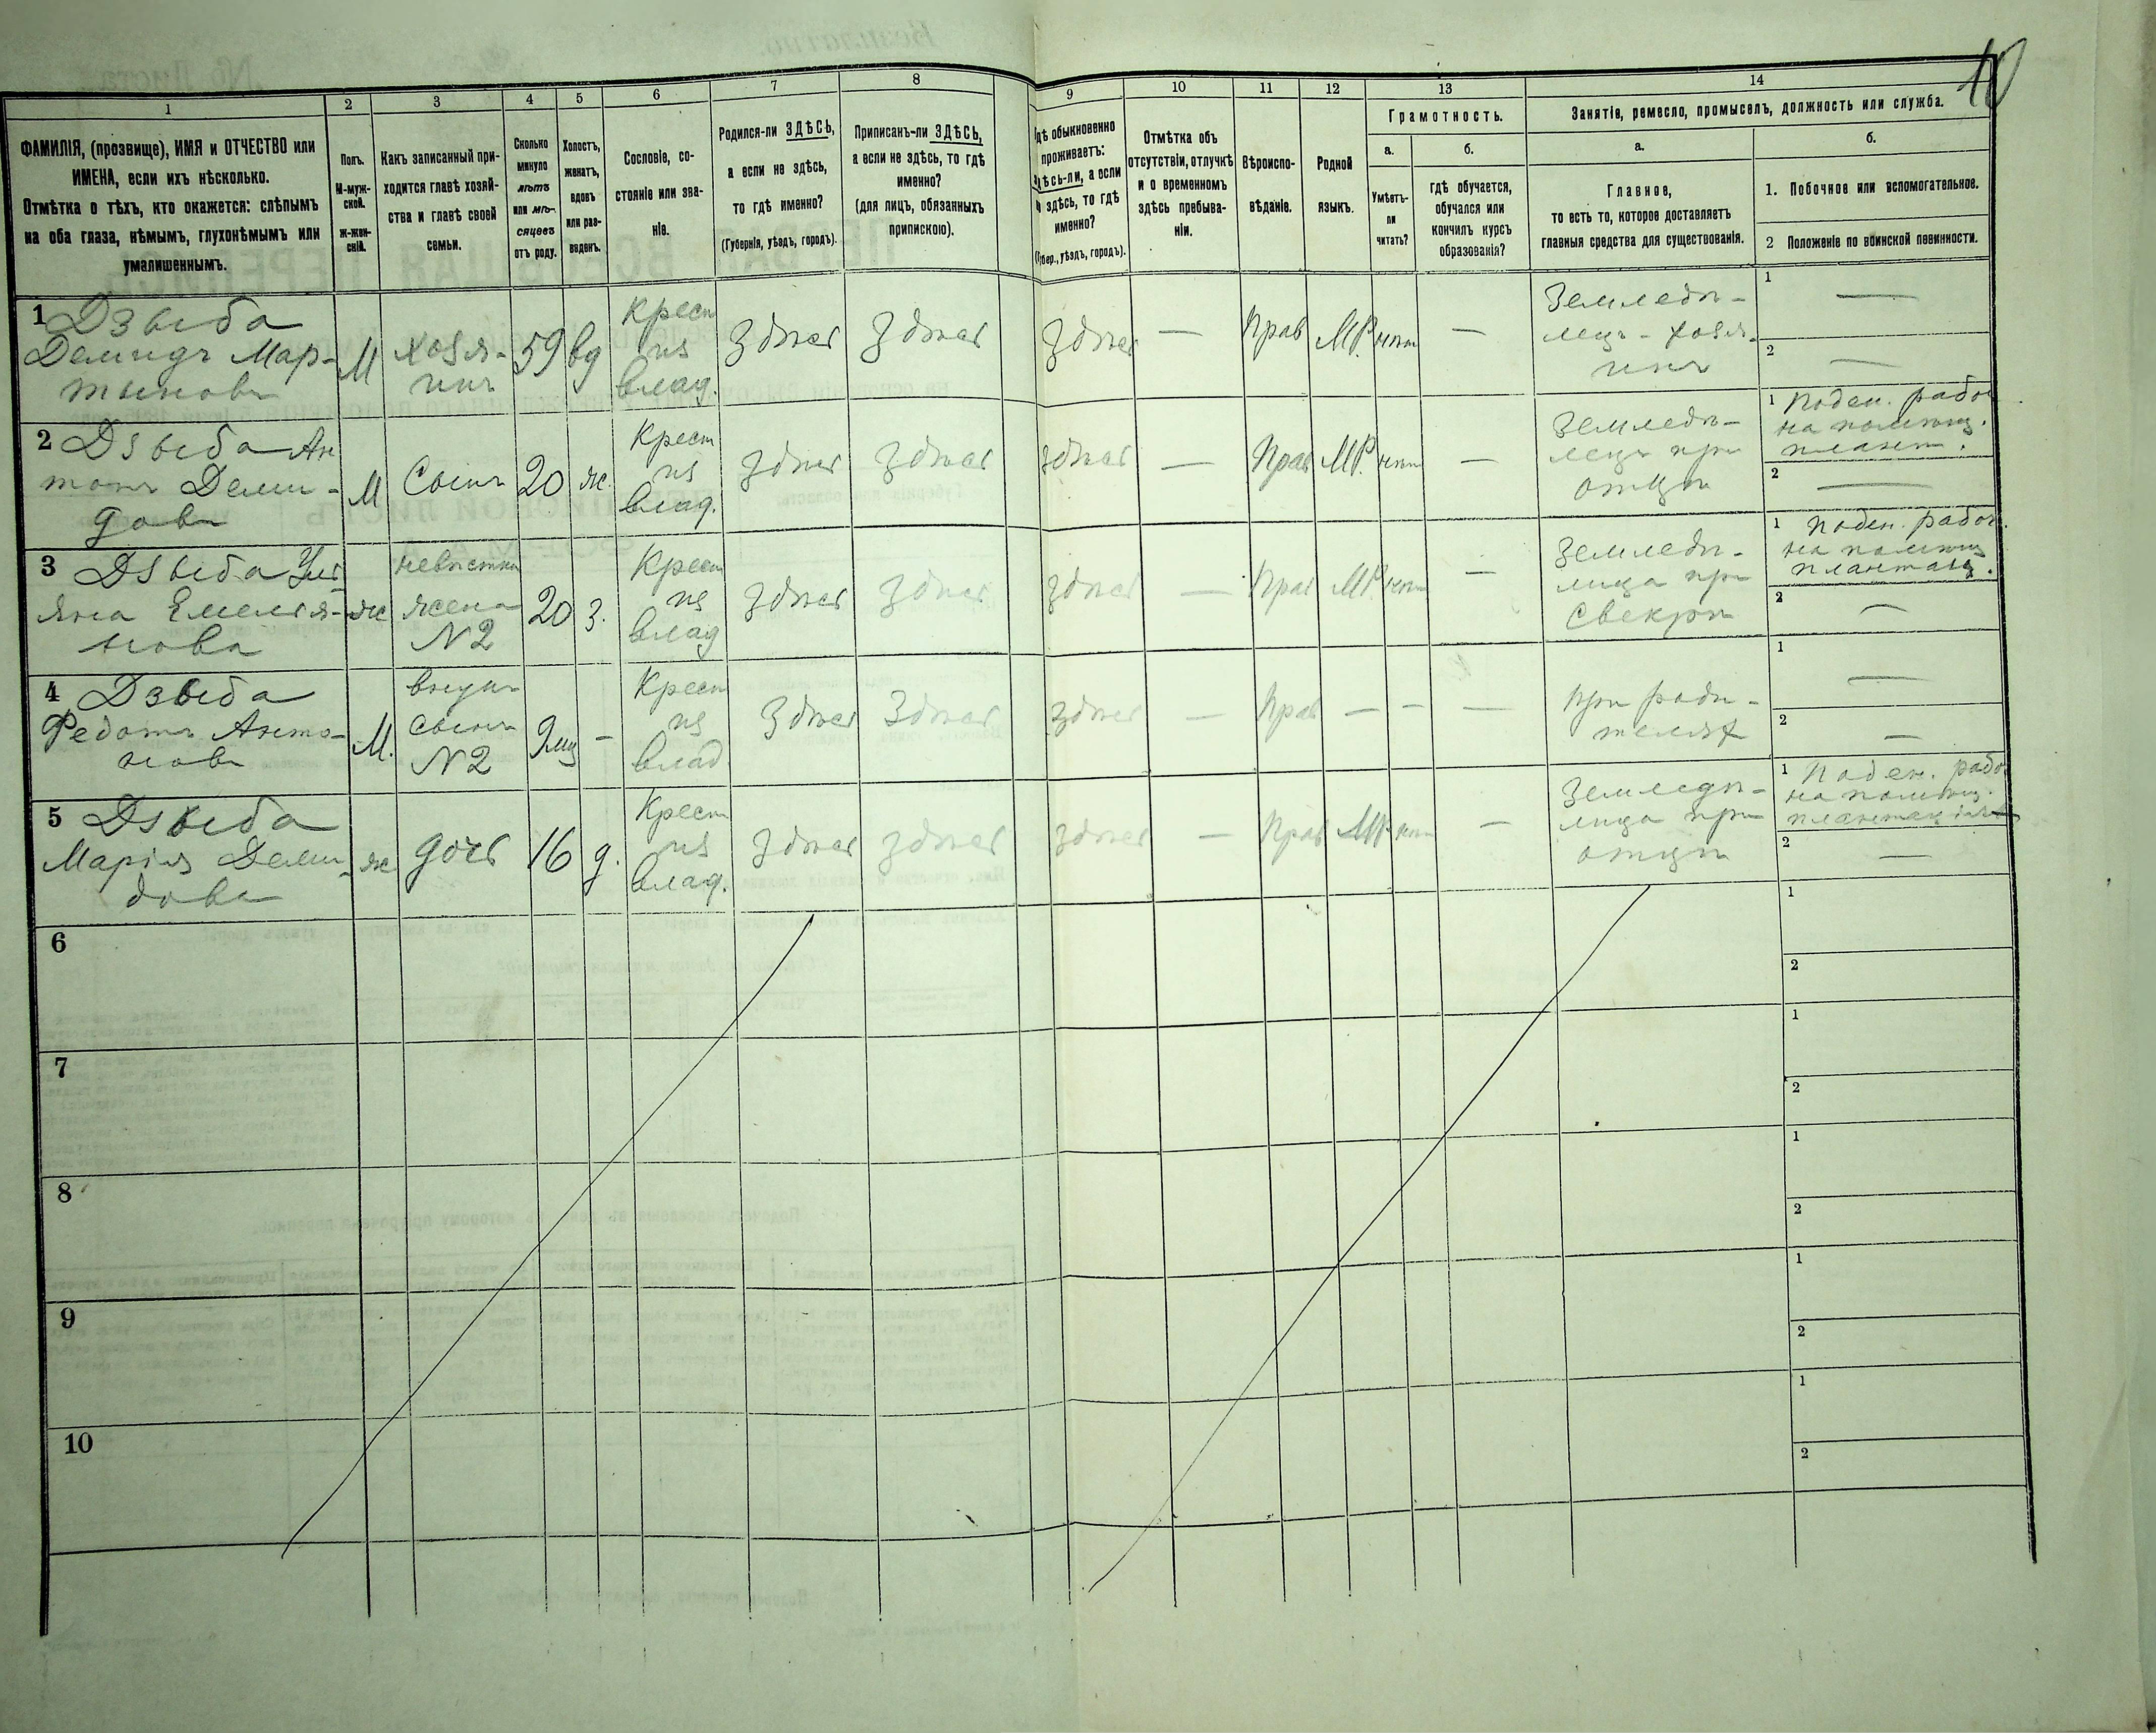 10
1
2
3
4
5
6
7
8
9
10
11
12
13
14
ФАМИЛІЯ, (прозвище), ИМЯ и ОТЧЕСТВО или
ИМЕНА, если ихъ нѣсколько.
Отмѣтка о тѣхъ, кто окажется: слѣпымъ
на оба глаза, нѣмымъ, глухонѣмымъ или
умалишеннымъ.
Полъ.
М-муж-
ской.
Ж-жен-
скій.
Какъ записанный при-
ходится главѣ хозяй-
ства и главѣ своей
семьи.
Сколько
минуло
лѣтъ
или мѣ-
сяцевъ
отъ роду.
Холостъ,
женатъ,
вдовъ
или раз-
веденъ.
Сословіе, со-
стояніе или зва-
ніе.
Родился-ли ЗДѢСЬ,
а если не здѣсь,
то гдѣ именно?
(Губернія, уѣздъ, городъ).
Приписанъ-ли ЗДѢСЬ,
а если не здѣсь, то гдѣ
именно?
(для лицъ, обязанныхъ
припискою).
Гдѣ обыкновенно
проживаетъ:
здѣсь-ли, а если
не здѣсь, то гдѣ
именно?
(Губер., уѣздъ, городъ).
Отмѣтка объ
отсутствіи, отлучкѣ
и о временномъ
здѣсь пребыва-
ніи.
Вѣроиспо-
вѣданіе.
Родной
языкъ.
Грамотность.
а.
Умѣетъ-
ли
читать?
б.
гдѣ обучается,
обучался или
кончилъ курсъ
образованія?
Занятіе, ремесло, промыселъ, должность или служба.
а.
Главное,
то есть то, которое доставляетъ
главныя средства для существованія.
б.
1. Побочное или вспомогательное.
2 Положеніе по воинской повинности.
1 Дзыба
Демидъ Мар-
тыновъ
М
хозя-
инъ
59
вд
Крест
из
влад.
здѣсь
здѣсь
здѣсь
—
Прав
МР.
нѣт
—
Земледѣ-
лец - хозя-
инъ
1 —
2 —
2 Дзыба Ан
тонъ Деми-
довъ
М
Сынъ
20
ж.
Крест
из
влад.
здѣсь
здѣсь
здѣсь
—
Прав
МР.
нѣт
—
Земледѣ-
лецъ при
отцѣ
1 Поден. рабо
на помѣщ.
плант.
2 —
3 Дзыба Уль
яна Емелья-
нова
ж
невѣстка
жена
N2
20
з.
Крест
из
влад
здѣсь
здѣсь
здѣсь
—
Прав
МР
нѣт
—
Земледѣ-
лица при
Свекрѣ
1 Поден. рабо
на помѣщ
плантац.
2 —
4 Дзыба
Федотъ Анто-
новъ
М.
внукъ
сынъ
N2
9 мц
-
Крест
из
влад
здѣсь
здѣсь
здѣсь
—
Прав
—
—
—
При роди-
телях
1 —
2 —
5 Дзыба
Марія Деми-
дова
ж
дочь
16
д.
Крест
из
влад.
здѣсь
здѣсь
здѣсь
—
Прав
МР
нѣт
—
Земледѣ-
лица при
отцѣ
1 Поден. рабо
на помѣщ.
плантаціях
2 —
6
1
2
7
1
2
8
1
2
9
1
2
10
1
2